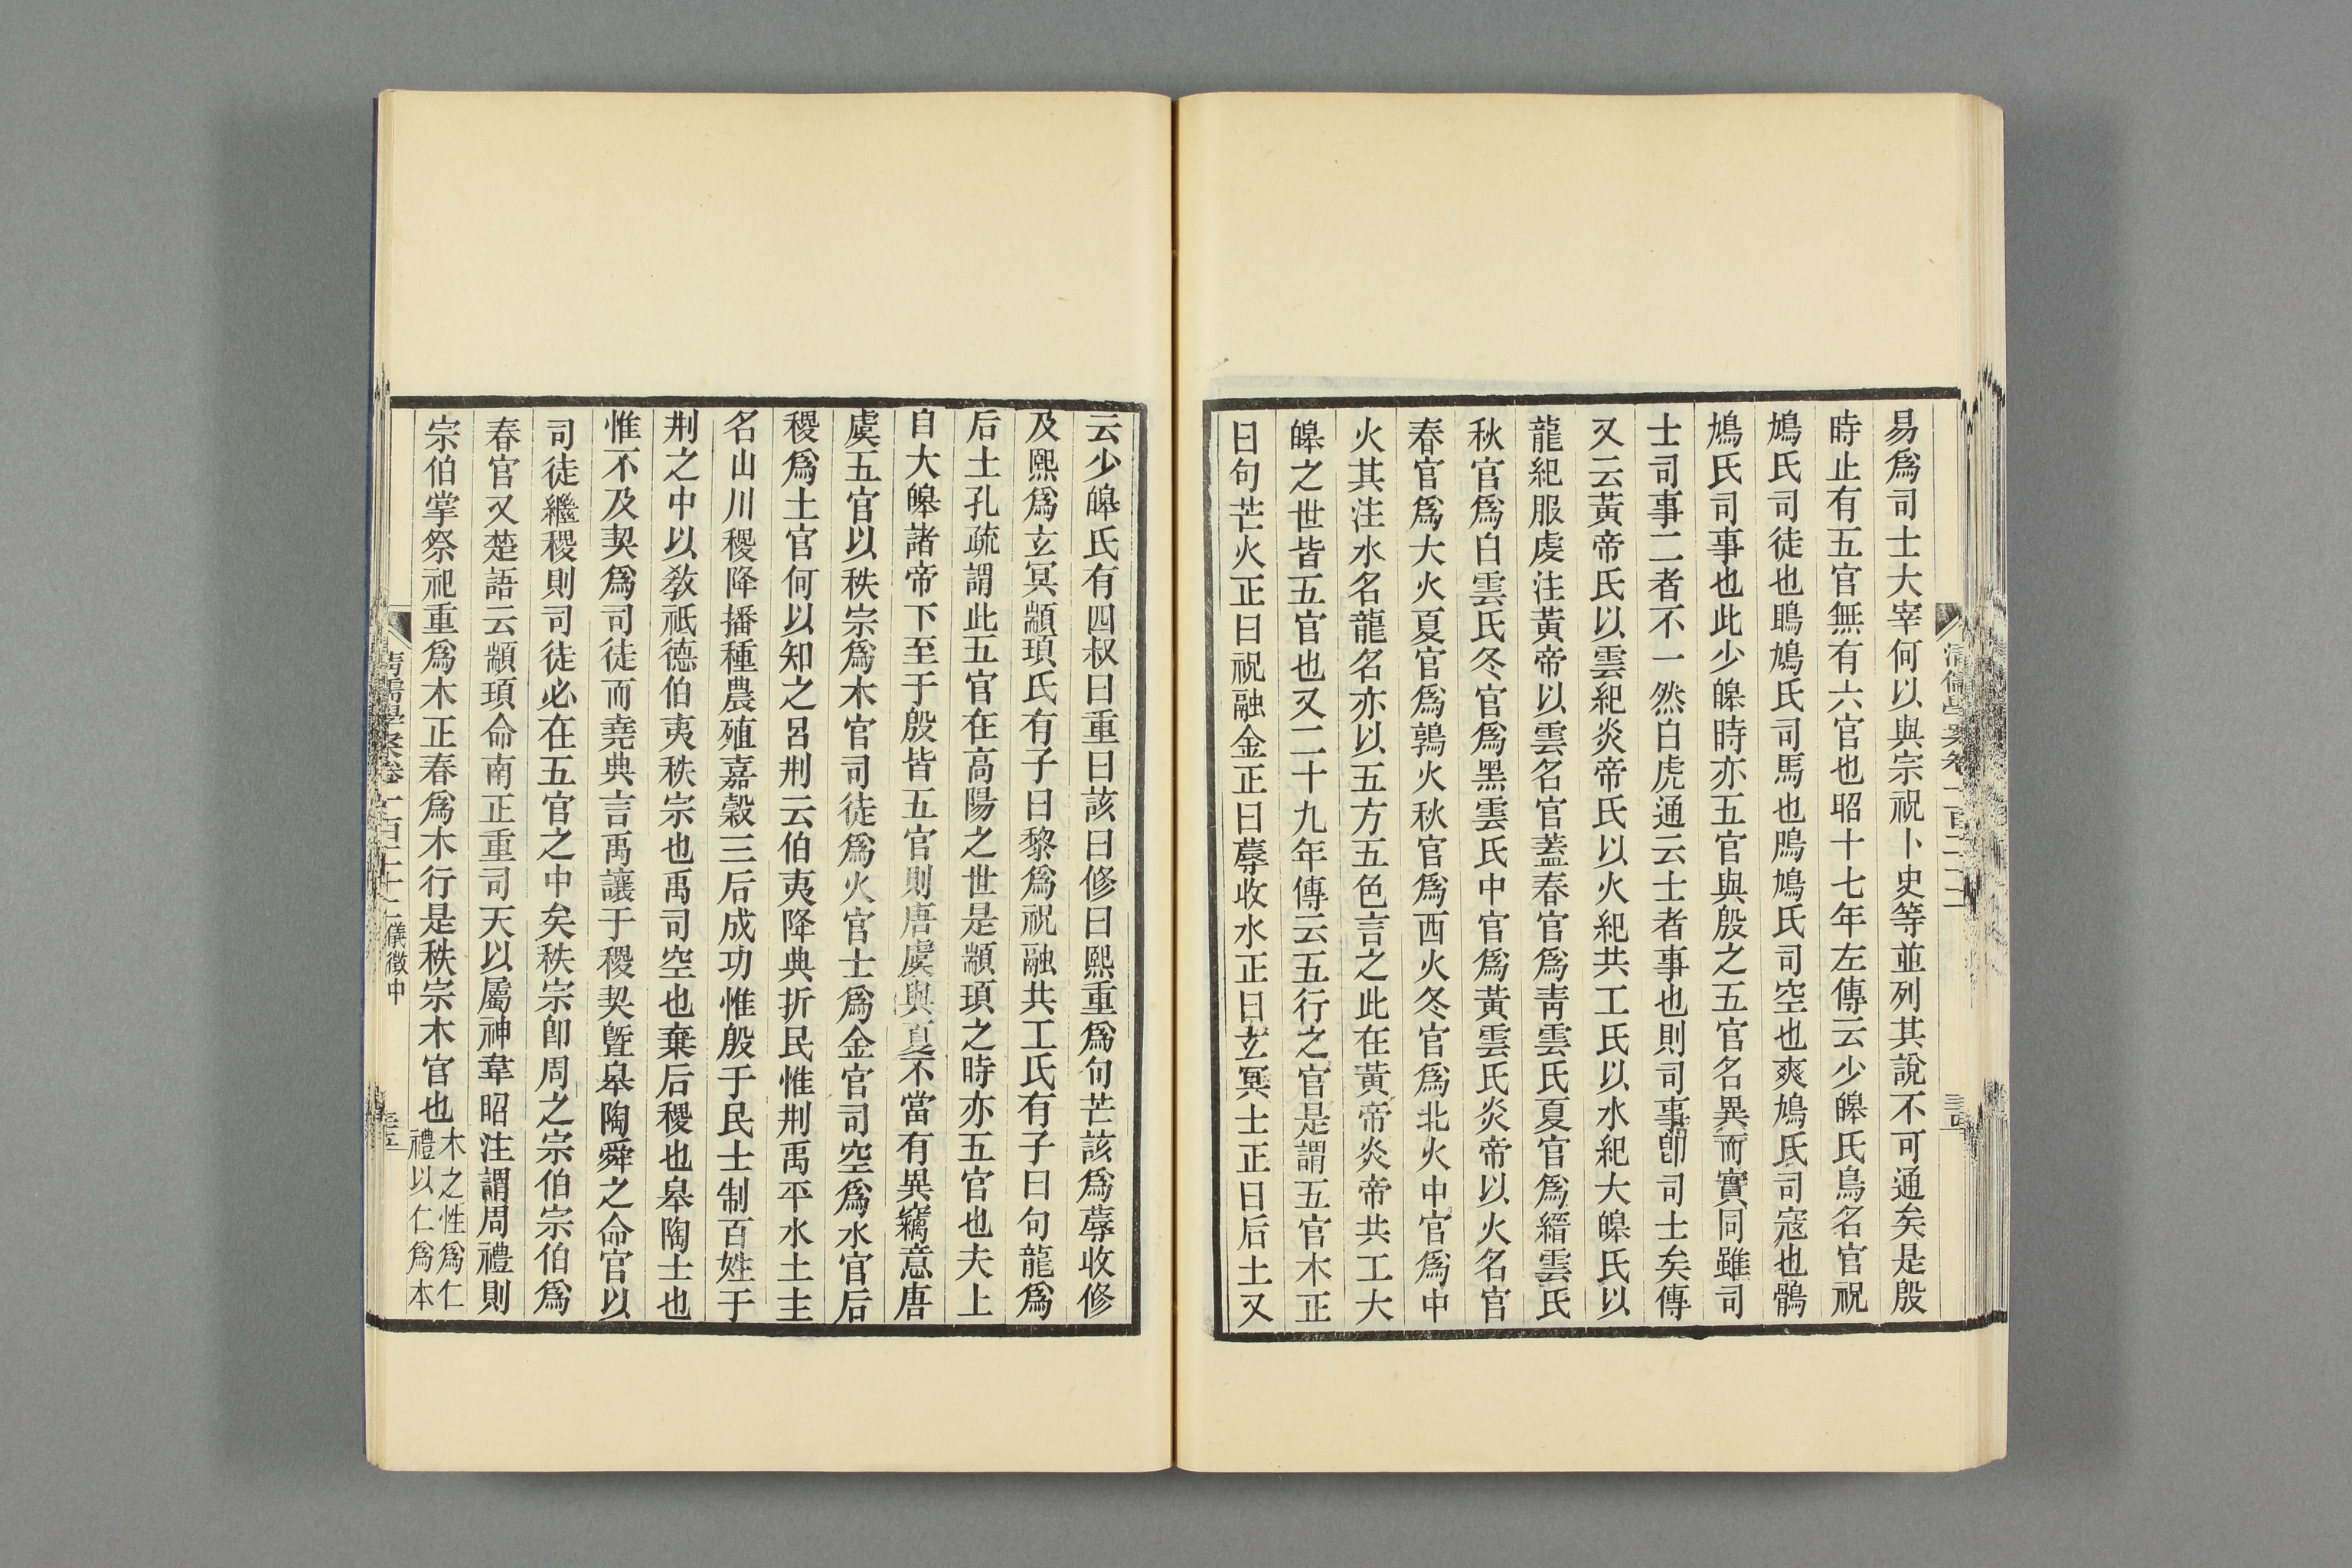 易爲司士大宰何以與宗祝卜史等並列其說不可通矣是殷
時止有五官無有六官也昭十七年左傳云少皞氏鳥名官祝
鳩氏司徒也鴡鳩氏司馬也鳲鳩氏司空也爽鳩氏司寇也鶻
鳩氏司事也此少皞時亦五官與殷之五官名異而實同雖司
士司事二者不一然白虎通云士者事也則司事卽司士矣傳
又云黃帝氏以雲紀炎帝氏以火紀共工氏以水紀大皞氏以
龍紀服虔注黃帝以雲名官蓋春官爲靑雲氏夏官爲縉雲氏
秋官爲白雲氏冬官爲黑雲氏中官爲黃雲氏炎帝以火名官
春官爲大火夏官爲鶉火秋官爲西火冬官爲北火中官爲中
火其注水名龍名亦以五方五色言之此在黃帝炎帝共工大
皞之世皆五官也又二十九年傳云五行之官是謂五官木正
曰句芒火正曰祝融金正曰蓐收水正曰玄冥土正曰后土又
云少皞氏有四叔曰重曰該曰修曰熙重爲句芒該爲蓐收修
及熙爲玄冥顓頊氏有子曰黎爲祝融共工氏有子曰句龍爲
后土孔疏謂此五官在高陽之世是顓頊之時亦五官也夫上
自大皞諸帝下至于殷皆五官則唐虞與夏不當有異竊意唐
虞五官以秩宗爲木官司徒爲火官士爲金官司空爲水官后
稷爲土官何以知之呂刑云伯夷降典折民惟刑禹平水土主
名山川稷降播種農殖嘉穀三后成功惟殷于民士制百姓于
刑之中以敎祗德伯夷秩宗也禹司空也棄后稷也皋陶士也
惟不及契爲司徒而堯典言禹讓于稷契曁皋陶舜之命官以
司徒繼稷則司徒必在五官之中矣秩宗卽周之宗伯宗伯爲
春官又楚語云顓頊命南正重司天以屬神韋昭注謂周禮則
宗伯掌祭祀重爲木正春爲木行是秩宗木官也木之性爲仁
禮以仁爲本
清儒學案卷一百二十二 儀徵中